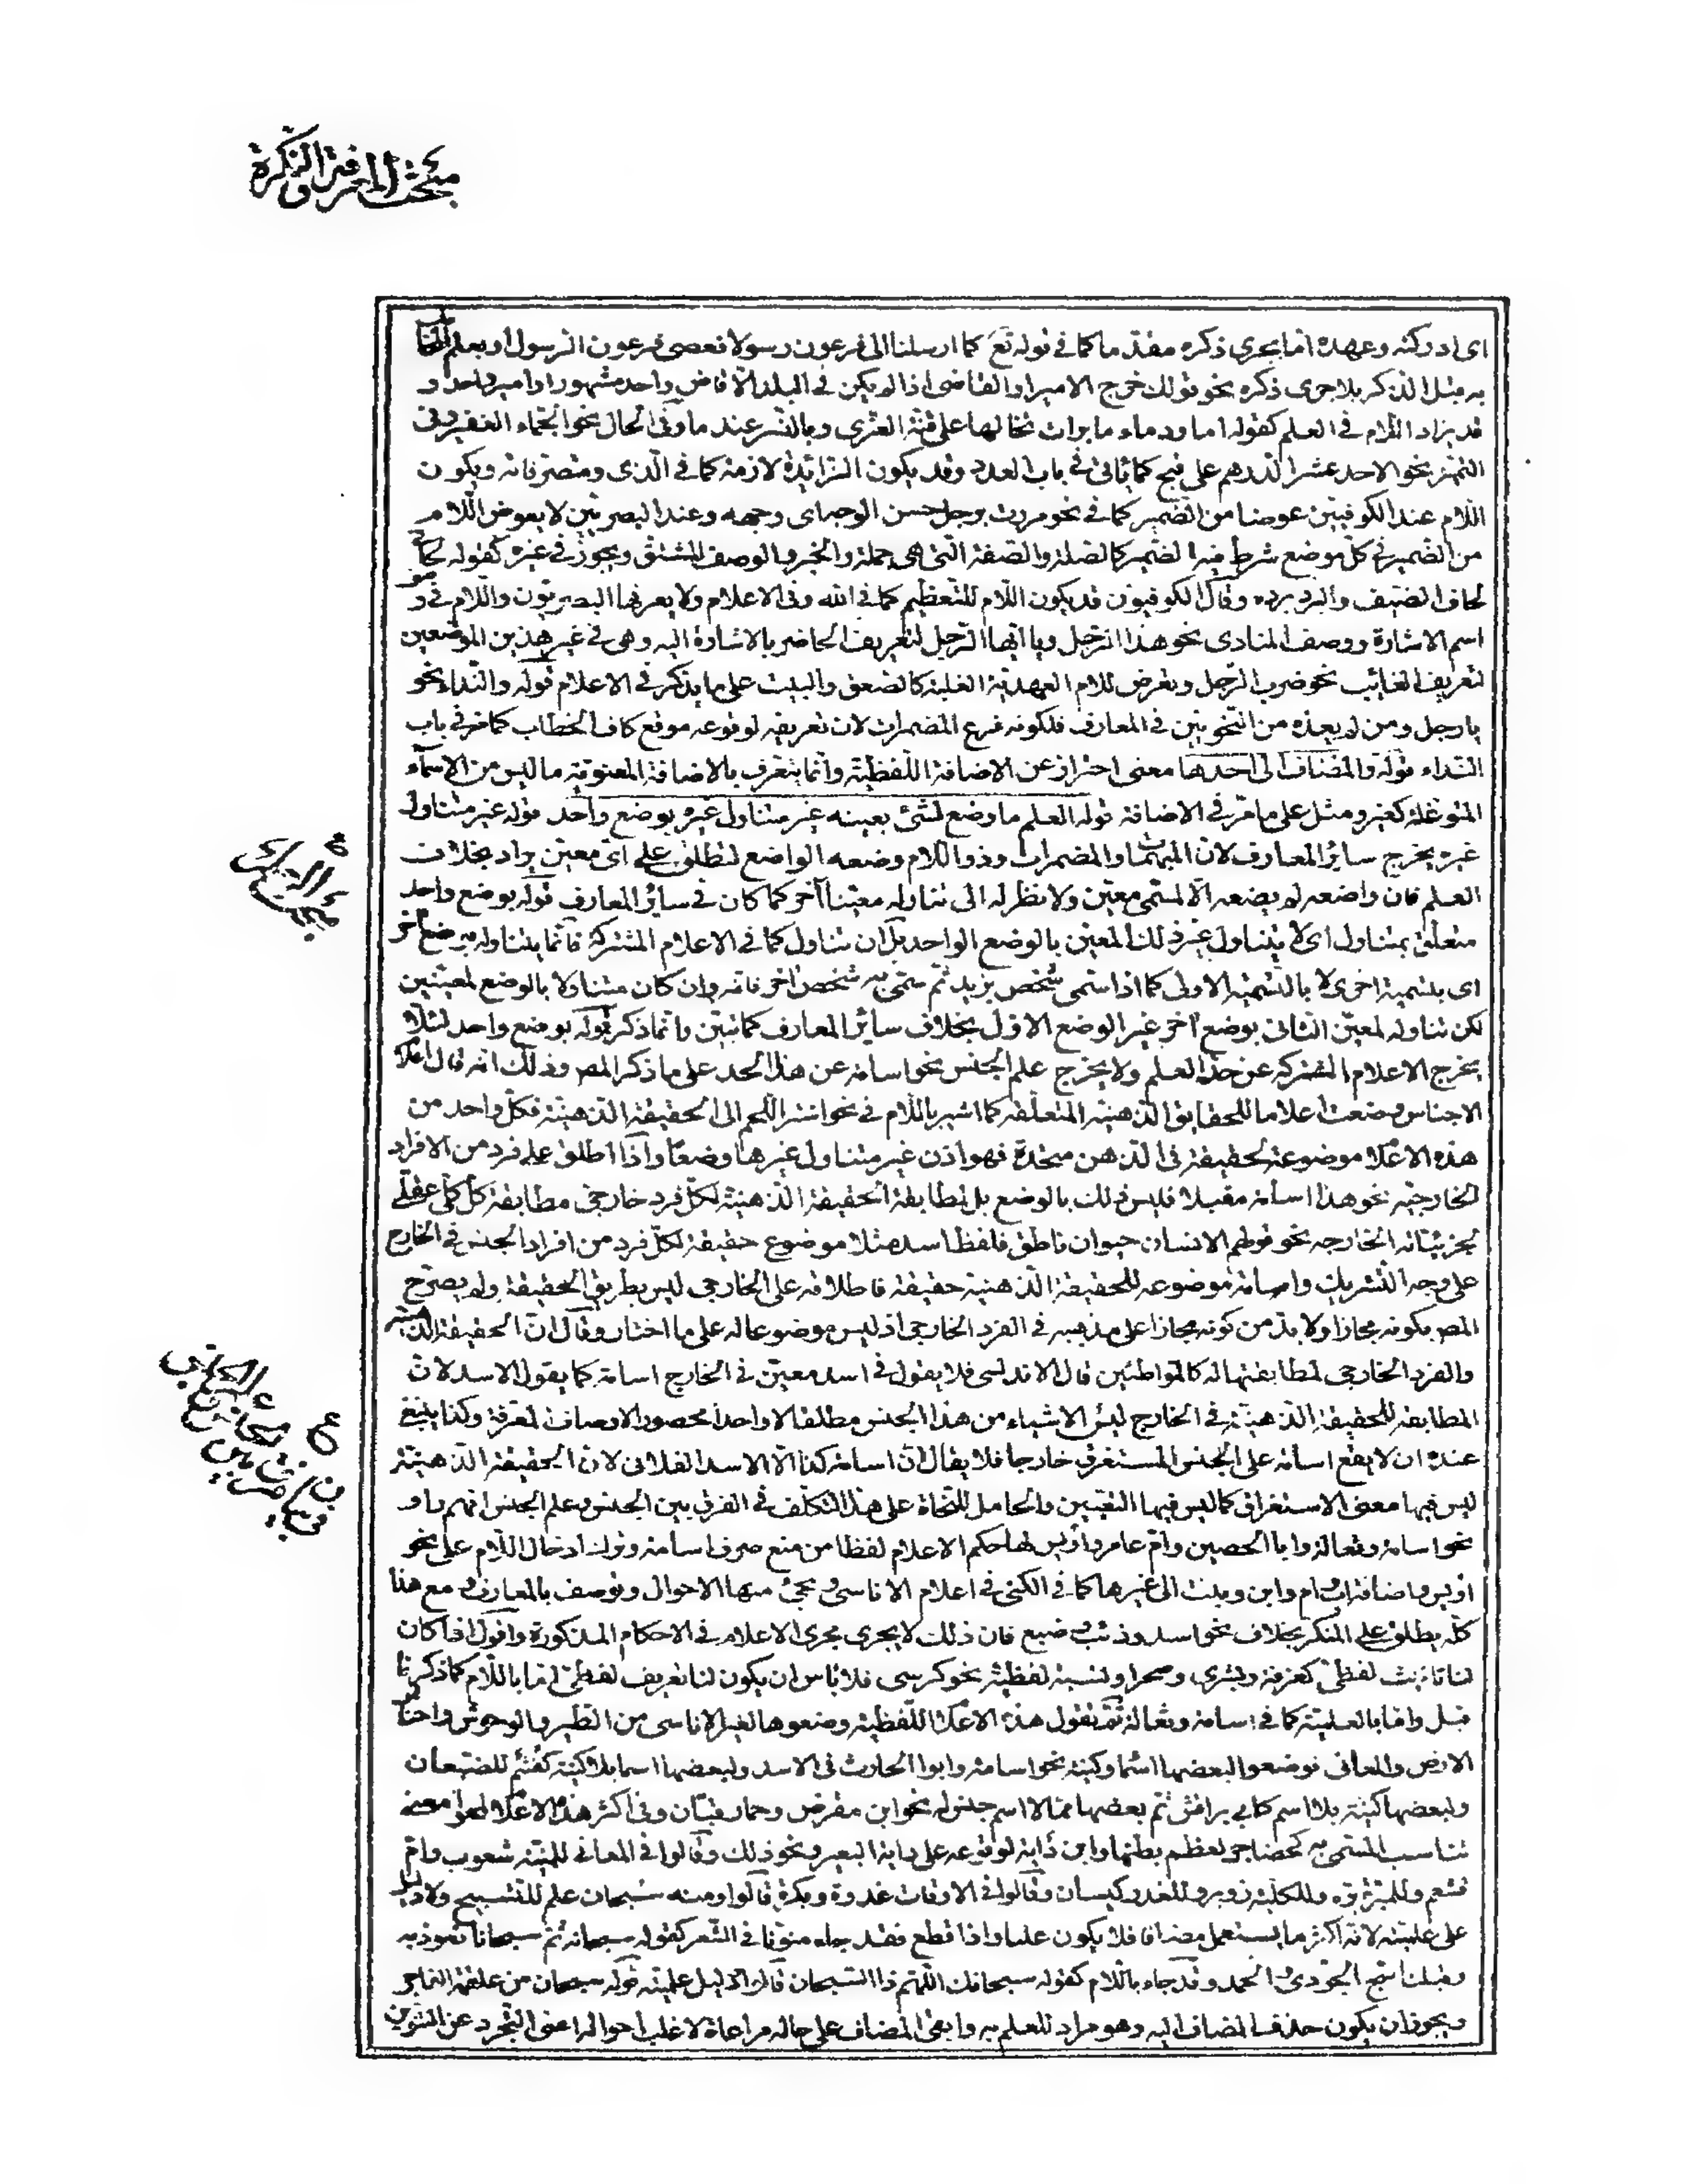 مبحث المعرفة والنكرة
اى ادركته وعهده اما بجرى ذكره مقدما كما فى قوله تع كما ارسلنا الى فرعون رسولا فعصى فرعون الرسول او بعلم المخاطب
به قبل الذكر بلا جرى ذكره نحو قولك خرج الامير او القاضى اذا لم يكن فى البلد الا قاض واحد مشهور او امير واحد و
قد يزاد اللام فى العلم كقوله اما ودماء مايرات تخالها على قنة العزى وبالنسر عندما وفى الحال نحو الجماء الغفير وفى
التميز نحو الاحد عشر الدرهم على قبح كما يأتى فى باب العدد وقد يكون الزائدة لازمة كما فى الذى ومتصرفاته ويكون
اللام عند الكوفيين عوضا من الضمير كما فى نحو مررت برجل حسن الوجه اى وجهه وعند البصريين لا يعوض اللام
من الضمير فى كل موضع شرط فيه الضمير كالصلة والصفة التى هى جملة والخبر والوصف المشتق ويجوز فى غيره كقوله
لحافى لحاف الضيف والبرد برده وقال الكوفيون قد يكون اللام للتعظيم كما فى الله وفى الاعلام ولا يعرفها البصريون واللام فى وصف
اسم الاشارة ووصف المنادى نحو هذا الرجل ويا ايها الرجل لتعريف الحاضر بالاشارة اليه وهى فى غير هذين الموضعين
لتعريف الغائب نحو ضرب الرجل ويعرض للام العهدية الغلبة كالصعق والبيت على ما يذكر فى الاعلام قوله والنداء نحو
يا رجل ومن لم يعده من النحويين فى المعارف فلكونه فرع المضمرات لان تعريفه لوقوعه موقع كاف الخطاب كما مر فى باب
النداء قوله والمضاف الى احدها معنى احتراز عن الاضافة اللفظية وانما يتعرف بالاضافة المعنوية ما ليس من الاسماء
المتوغلة كغير ومثل على ما مر فى الاضافة قوله العلم ما وضع لشئ بعينه غير متناول غيره بوضع واحد قوله غير متناول
غيره يخرج سائر المعارف لان المبهمات والمضمرات وذو اللام وضعه الواضع ليطلق على اى معين يراد بخلاف
العلم فان واضعه لم يضعه الا لمسمى معين ولا نظر له الى تناوله معينا آخر كما كان فى سائر المعارف قوله بوضع واحد
متعلق بمتناول اى لا يتناول غير ذلك المعين بالوضع الواحد بل ان تناول كما فى الاعلام المشتركة فانما يتناوله بوضع آخر
اى بتسمية اخرى لا بالتسمية الاولى كما اذا سمى شخص بزيد ثم سمى به شخص آخر فانه وان كان متناولا بالوضع لمعينين
لكن تناوله لمعين الثانى بوضع آخر غير الوضع الاول بخلاف سائر المعارف كما تبين وانما ذكر قوله بوضع واحد لئلا
يخرج الاعلام المشتركة عن حد العلم ولا يخرج علم الجنس نحو اسامة عن هذا الحد على ما ذكر المص وذلك انه قال اعلام
الاجناس وضعت اعلاما للحقايق الذهنية المتعلقة كما اشير باللام فى نحو اشتر اللحم الى الحقيقة الذهنية فكل واحد من
هذه الاعلام موضوعة لحقيقة فى الذهن متحدة فهو اذن غير متناول غيرها وضعا واذا اطلق على فرد من الافراد
الخارجية نحو هذا اسامة مقبلا فليس ذلك بالوضع بل لمطابقة الحقيقة الذهنية لكل فرد خارجى مطابقة كل كلى عقلى
لجزئياته الخارجه نحو قولهم الانسان حيوان ناطق فلفظ اسد مثلا موضوع حقيقة لكل فرد من افراد الجنس فى الخارج
على وجه التشريك واسامة موضوعه للحقيقة الذهنية حقيقة فاطلاقه على الخارجى ليس بطريق الحقيقة ولم يصرح
المص بكونه مجازا ولا بد من كونه مجازا على مذهبه فى الفرد الخارجى اذ ليس موضوعا له على ما اختار وقال ان الحقيقة الذهنية
والفرد الخارجى لمطابقتها له كالمتواطئين قال الاندلسى فلا يقول فى اسد معين فى الخارج اسامة كما يقول الاسد لان
المطابقه للحقيقة الذهنية فى الخارج ليس الاشياء من هذا الجنس مطلقا لا واحدا محصور الاوصاف لمعرفة وكذا ينبغى
عنده ان لا يقع اسامة على الجنس المستغرق خارجا فلا يقال ان اسامة كذا الا الاسد الفلانى لان الحقيقة الذهنية
ليس فيها معنى الاستغراق كما ليس فيها التعيين والحامل للنحاة على هذا التكلف فى الفرق بين الجنس وعلم الجنس انهم راوا
نحو اسامة وثعالة وابا الحصين وام عامر واويس لها حكم الاعلام لفظا من منع صرف اسامة وترك ادخال اللام على نحو
اويس واضافة اب وام وابن وبنت الى غيرها كما فى الكنى فى اعلام الاناسى ويجئ منها الاحوال ويوصف بالمعارف مع هذا
كله يطلق على المنكر بخلاف نحو اسد وذئب وضبع فان ذلك لا يجرى مجرى الاعلام فى الاحكام المذكورة واقول اذا كان
لنا تانيث لفظى كغرفة وبشرى وصحراء ونسبة لفظية نحو كرسى فلا باس ان يكون لنا تعريف لفظى اما باللام كما ذكرنا
قبل واما بالعلمية كما فى اسامة وثعالة ثم نقول هذه الاعلام اللفظية وضعوها لغير الاناسى من الطير والوحوش واحناش
الارض والمعانى فوضعوا لبعضها اسما وكنية نحو اسامة وابو الحارث فى الاسد ولبعضها اسما بلا كنية كقثم للضبعان
ولبعضها كنية بلا اسم كابى براقش ثم بعضها مما لا اسم جنس له نحو ابن مقرض وحمار قبان وفى اكثر هذه الاعلام لمحوا معنى
تناسب المسمى به كحضاجر لعظم بطنها وابن داية لوقوعه على داية البعير ونحو ذلك وقالوا فى المعانى للمنية شعوب وام
قشعم وللمبرة بره وللكلية زوبر وللغدر كيسان وقالوا فى الاوقات غدوة وبكرة قالوا ومنه سبحان علم للتسبيح ولا دليل
على علميته لانه اكثر ما يستعمل مضافا فلا يكون علما واذا قطع فقد جاء منونا فى الشعر كقوله سبحانه ثم سبحانا نعوذ به
وقبلنا سبح الجودى والجمد وقد جاء باللام كقوله سبحانك اللهم ذا السبحان قالوا دليل علميته قوله سبحان من علقمة الفاخر
ويجوز ان يكون حذف المضاف اليه وهو مراد للعلم به وابقى المضاف على حاله مراعاة لاغلب احواله اعنى التجرد عن التنوين